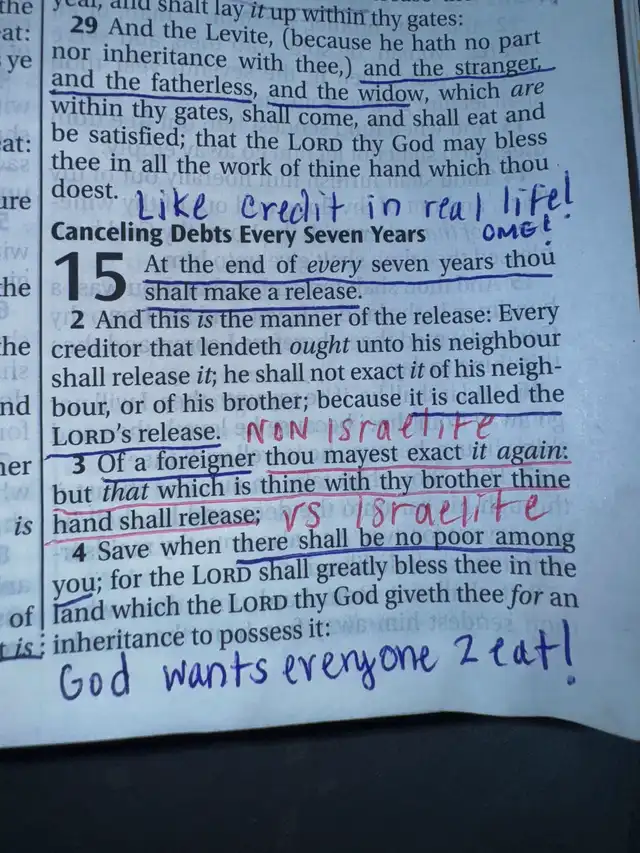 the
at:
ye
eat:
ure
the
the
nd
ner
is
of
t is:
year, and shalt lay it up within thy gates:
29 And the Levite, (because he hath no part
nor inheritance with thee,) and the stranger,
and the fatherless, and the widow, which are
within thy gates, shall come, and shall eat and
be satisfied; that the LORD thy God may bless
thee in all the work of thine hand which thou
doest.
Like credit in real life!
OMG!
Canceling Debts Every Seven Years
15 At the end of every seven years thou
shalt make a release.
2 And this is the manner of the release: Every
creditor that lendeth ought unto his neighbour
shall release it; he shall not exact it of his neigh-
bour, or of his brother; because it is called the
LORD's release. NON Israelite
3 Of a foreigner thou mayest exact it again:
but that which is thine with thy brother thine
hand shall release; VS Israelite
4 Save when there shall be no poor among
you; for the LORD shall greatly bless thee in the
land which the LORD thy God giveth thee for an
inheritance to possess it:
God wants everyone 2 eat!